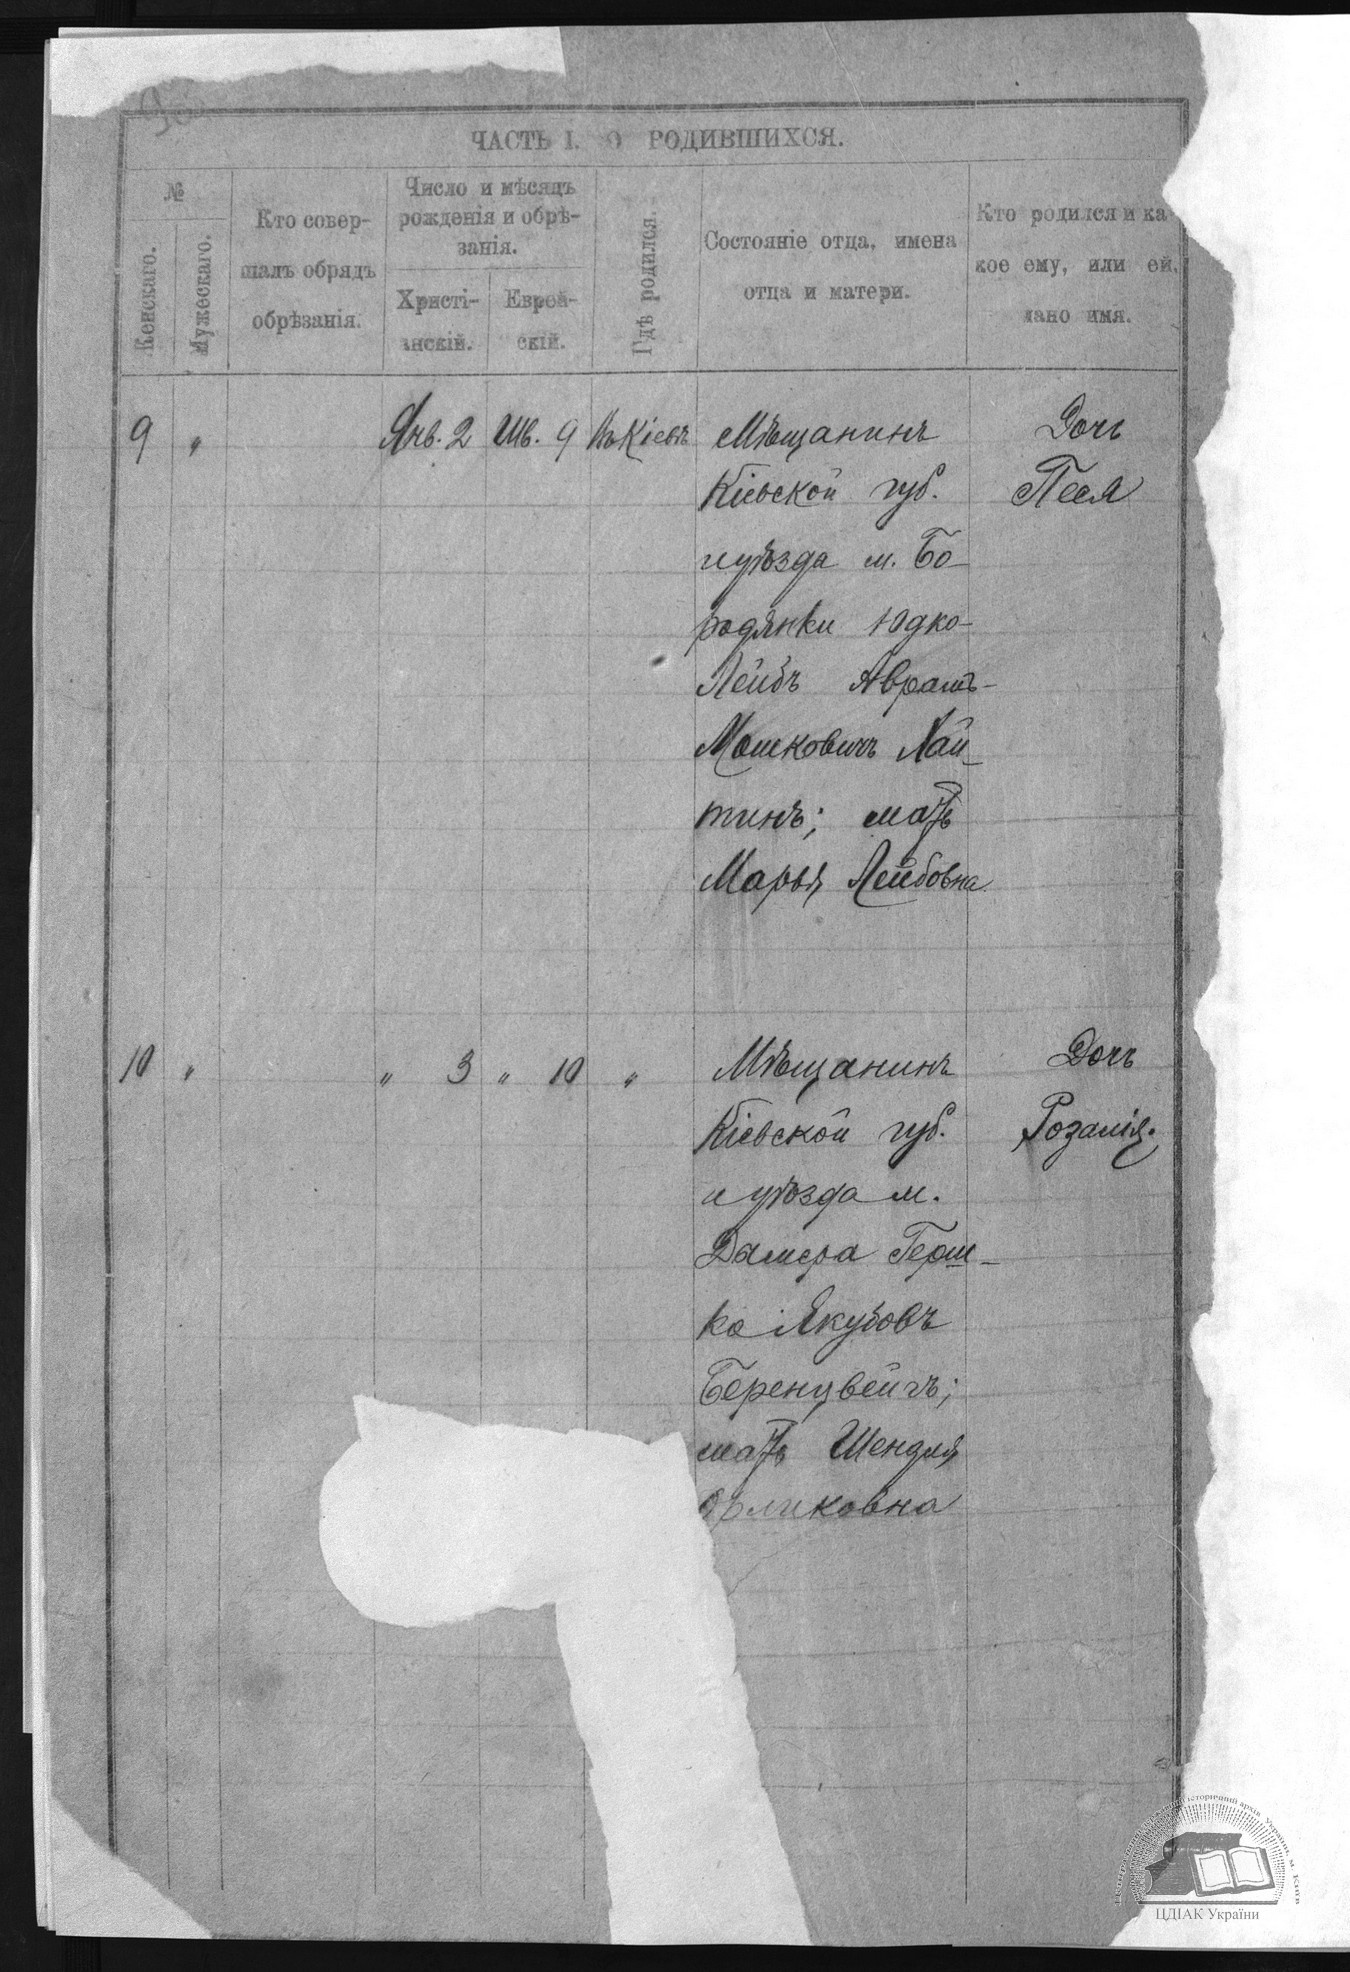 ЧАСТЬ I. О РОДИВШИХСЯ.
№
Женскаго.
Мужескаго.
Кто совер-
шалъ обрядъ
обрѣзанія.
Число и мѣсяцъ
рожденія и обрѣ-
занія.
Христі-
анскій.
Еврей-
скій.
Гдѣ родился.
Состояніе отца, имена
отца и матери.
Кто родился и ка
кое ему, или ей,
дано имя.
9 " Янв. 2 Шв. 9 Въ Кіевѣ Мѣщанинъ Дочь
Кіевской губ. Песя
и уѣзда м. Бо-
родянки Юдко-
Лейбъ Аврамъ-
Мошковичъ Лай-
тинъ; мать
Марья Лейбовна
10 " " 3 " 10 " Мѣщанинъ Дочь
Кіевской губ. Розалія.
и уѣзда м.
Дымера Герш-
ко Якубовъ
Беренцвейгъ;
мать Шендля
ЦДІАК України